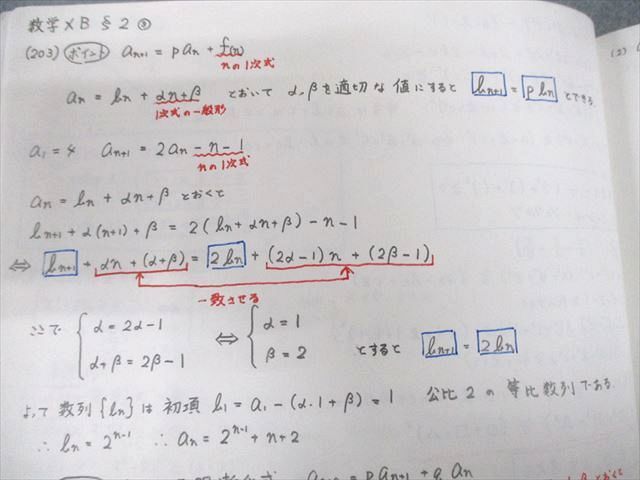 数学XB §2 ③
(203) ポイント aₙ₊₁ = p aₙ + f(n)
nの1次式
aₙ = bₙ + αn+β とおいて α, βを適切な値にすると bₙ₊₁ = p bₙ とできる
1次式の一般形
a₁ = 4 aₙ₊₁ = 2aₙ - n - 1
nの1次式
aₙ = bₙ + αn + β とおくと
bₙ₊₁ + α(n+1) + β = 2(bₙ + αn + β) - n - 1
⇔ bₙ₊₁ + αn + (α+β) = 2bₙ + (2α-1)n + (2β-1)
一致させる
ここで { α = 2α-1 α+β = 2β-1 ⇔ { α = 1 β = 2 とすると bₙ₊₁ = 2bₙ
よって 数列{bₙ}は 初項 b₁ = a₁ - (α・1 + β) = 1 公比 2 の 等比数列である
∴ bₙ = 2ⁿ⁻¹ ∴ aₙ = 2ⁿ⁻¹ + n + 2